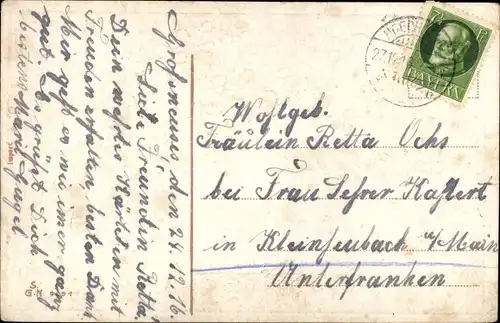 den 24.12.16.
Liebe Freundin Retta!
Dein wertes Kärtchen mit
Freuden erhalten, besten Dank
Mir geht es immer ganz
gut. Es grüßt Dich
bestens
Wohlgeb.
Fräulein Retta Ochs
bei Frau Lehrer
in Kleinheubach a/Main
Unterfranken
BAYERN